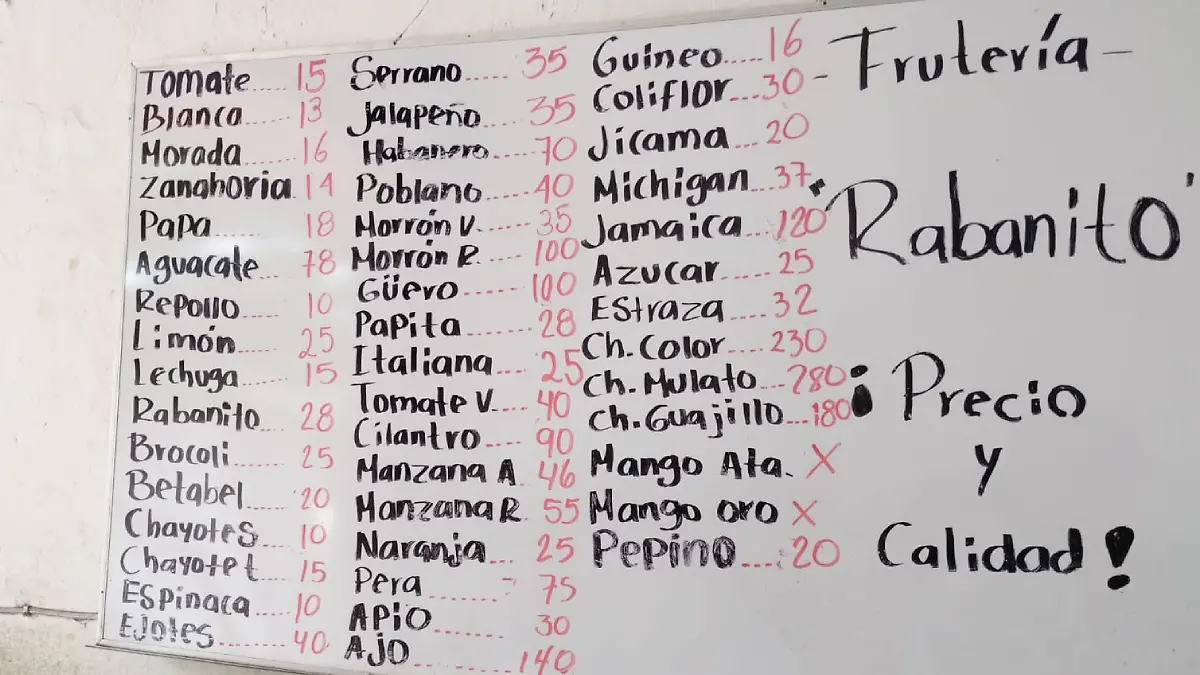 Tomate.....15
Blanca......13
Morada......16
Zanahoria.14
Papa.....18
Aguacate...78
Repollo.....10
Limón.....25
Lechuga......15
Rabanito....28
Brocoli......25
Betabel....20
Chayotes...10
Chayote t....15
Espinaca.....10
Ejotes........40
Serrano.....35
Jalapeño....35
Habanero.....70
Poblano.....40
Morrón V......35
Morrón R....100
Güero......100
Papita.......28
Italiana....25
Tomate V....40
Cilantro....90
Manzana A.46
Manzana R.55
Naranja...25
Pera........75
Apio.......30
Ajo..........140
Guineo.....16
Coliflor...30
Jicama...20
Michigan...37
Jamaica...120
Azucar.....25
Estraza....32
Ch. Color....230
Ch. Mulato...280
Ch. Guajillo...180
Mango Ata. X
Mango oro X
Pepino....20
- Frutería -
"Rabanito"
¡Precio
y
Calidad!